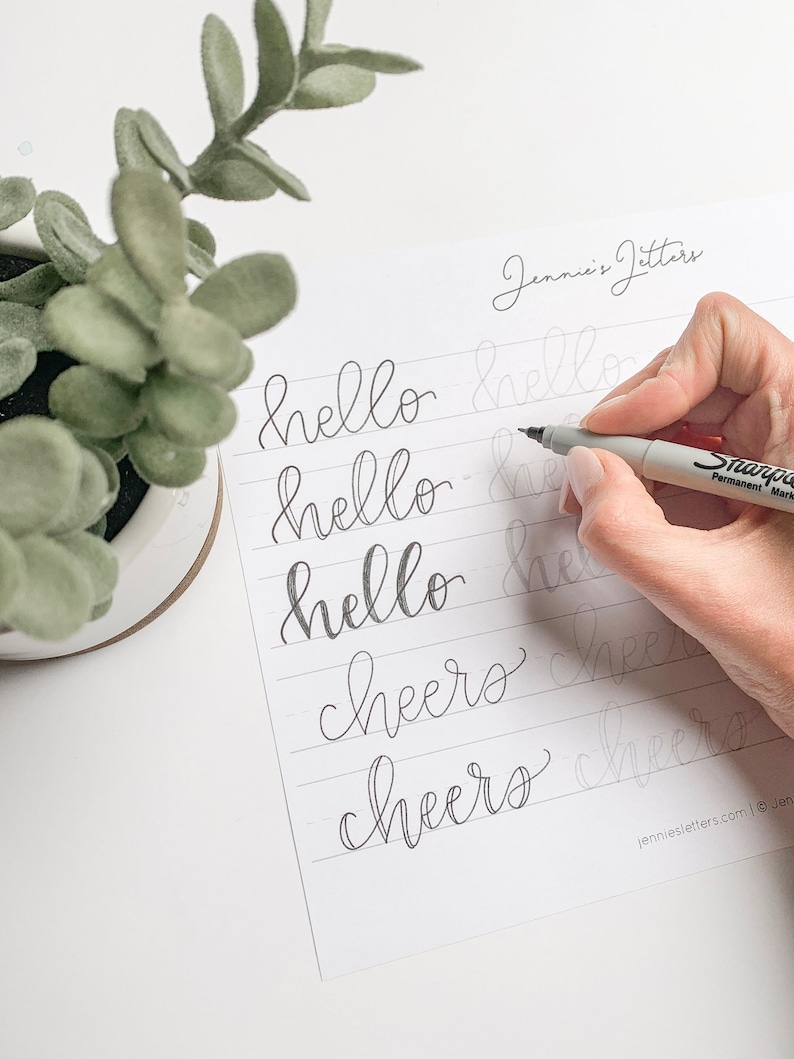 Jennie's Letters
hello hello
hello hello
hello hello
cheers cheers
cheers cheers
jenniesletters.com | © Jen
Sharpie
Permanent Mark